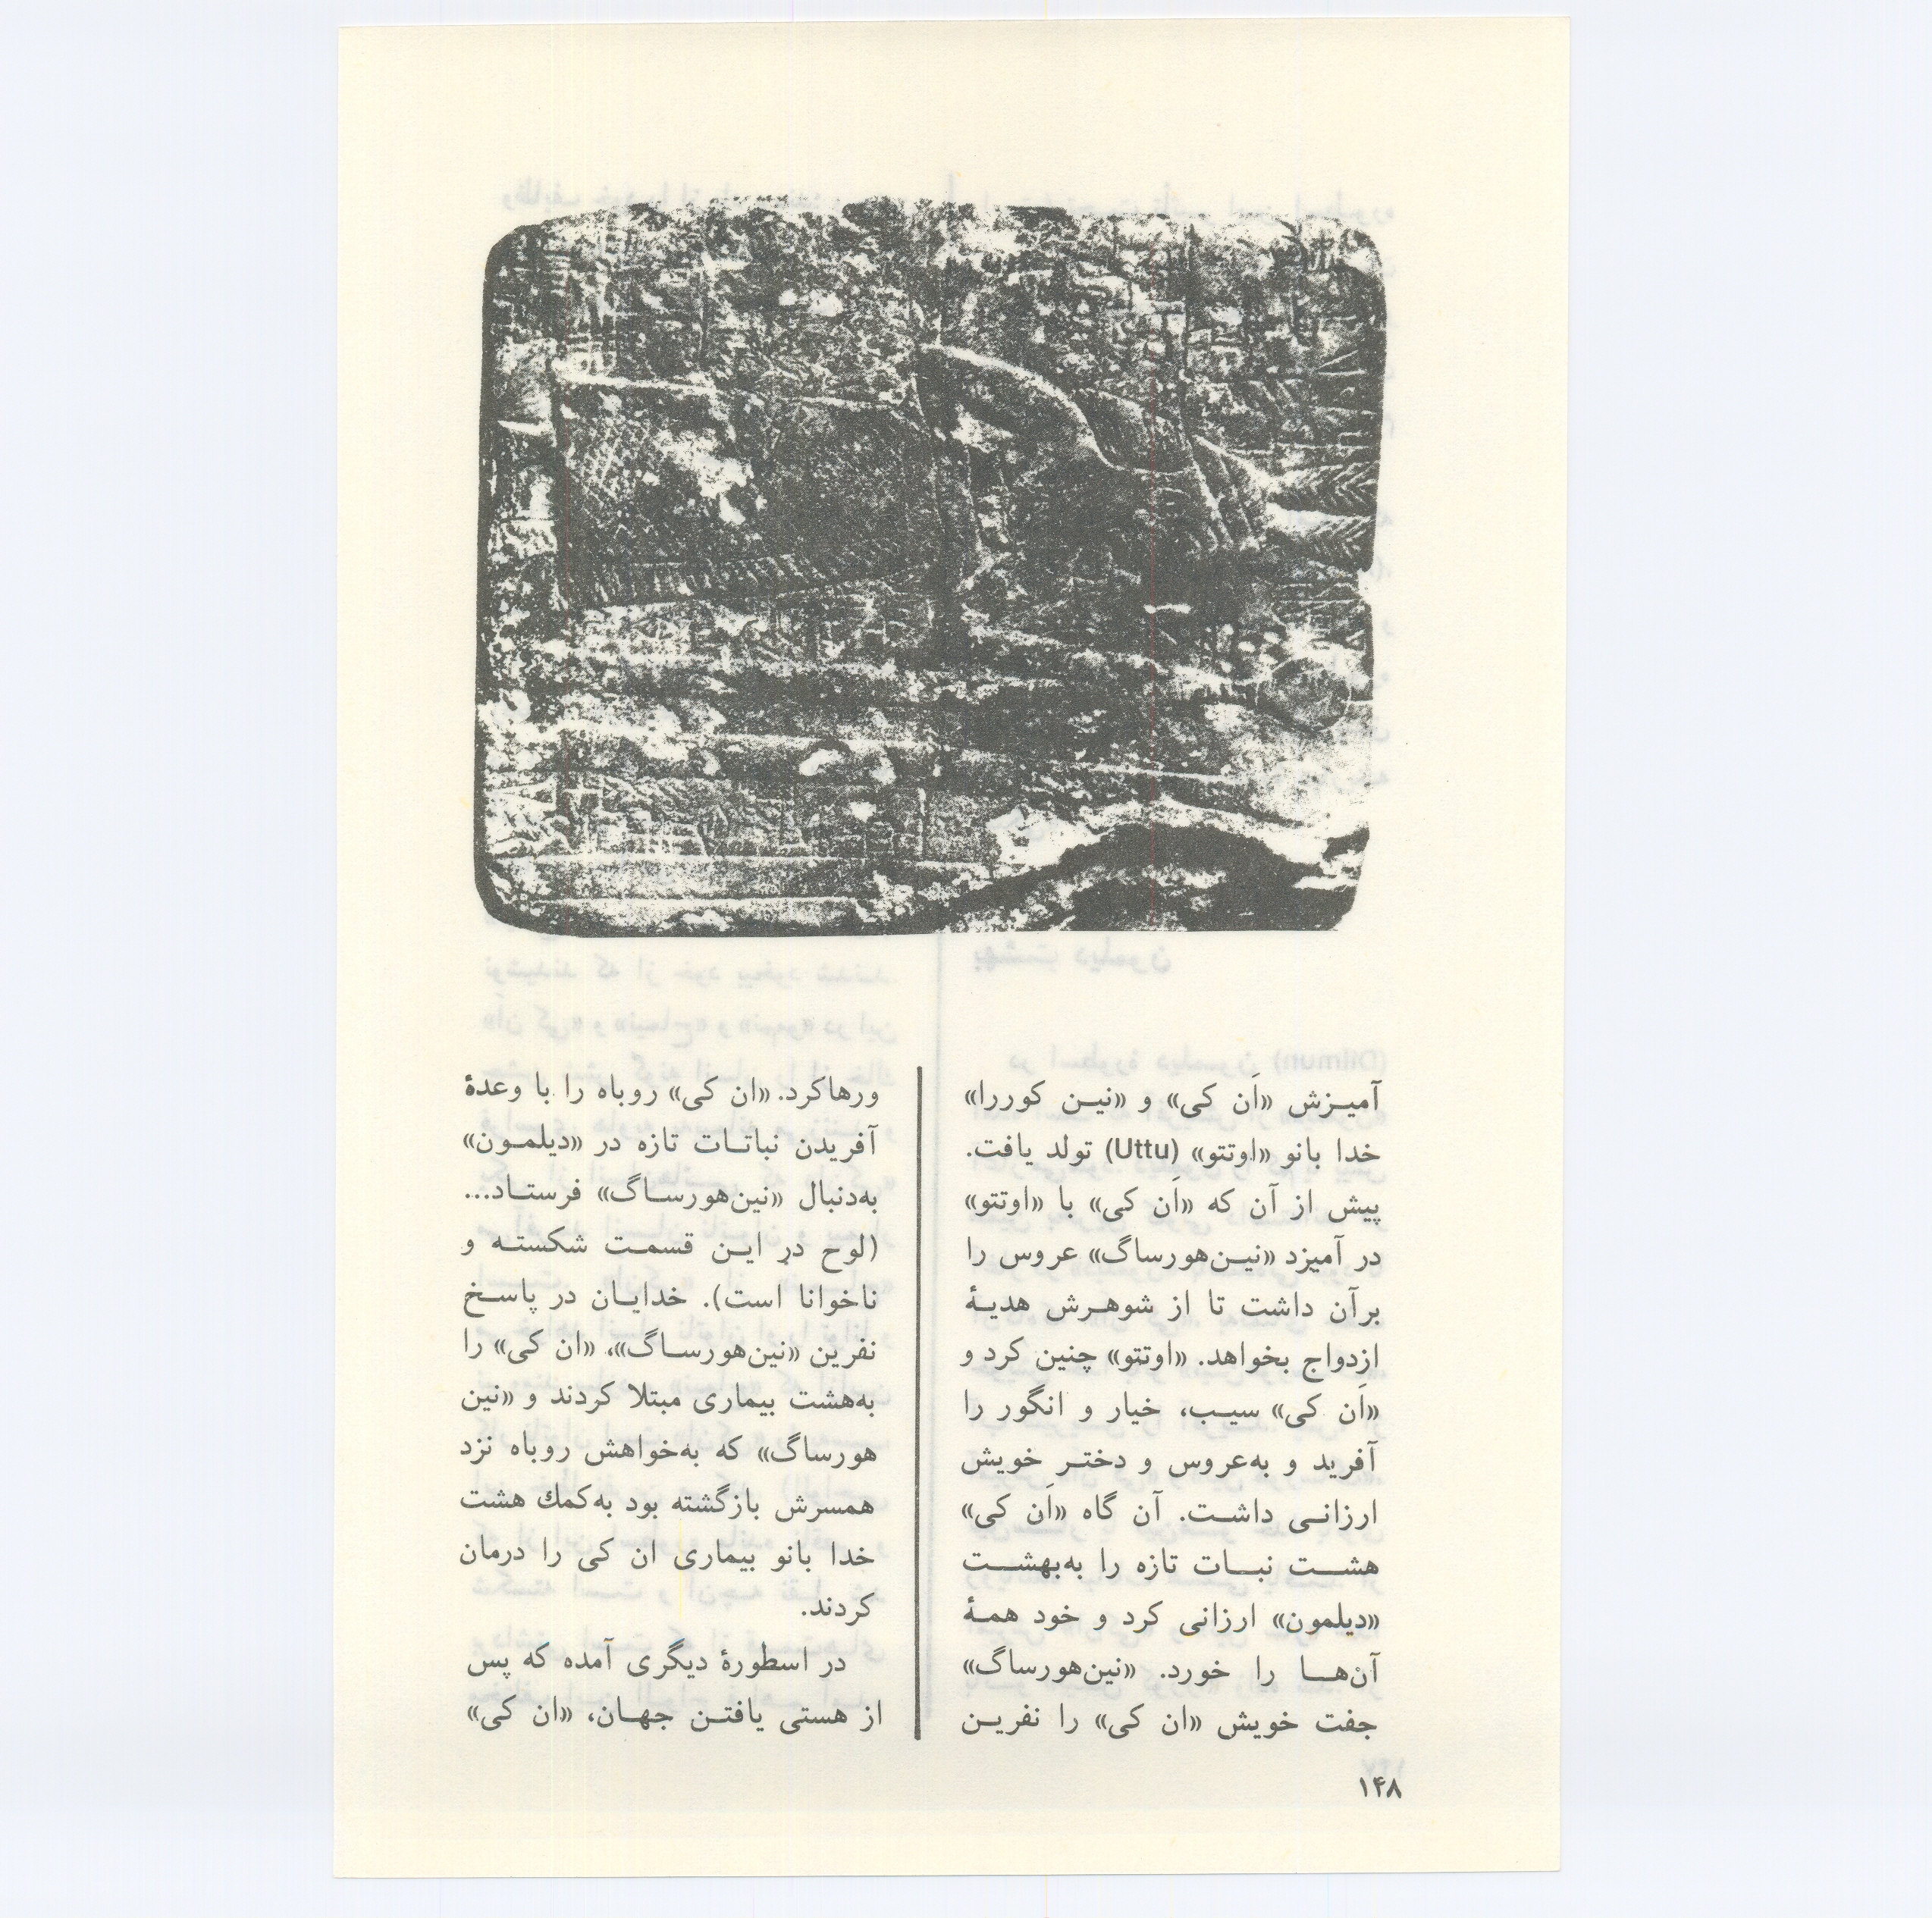 آمیـزش «اَن کی» و «نیـن کوررا»
خدا بانو «اوتتو» (Uttu) تولد یافت.
پیش از آن که «اَن کی» با «اوتتو»
در آمیزد «نیـن‌هورساگ» عروس را
برآن داشت تا از شوهـرش هدیـهٔ
ازدواج بخواهد. «اوتتو» چنین کرد و
«اَن کی» سیـب، خیار و انگور را
آفرید و به‌عروس و دختـر خویش
ارزانـی داشـت. آن گاه «اَن کی»
هشـــت نبـــات تازه را به‌بهشـــت
«دیلمون» ارزانی کرد و خود همـهٔ
آن‌هـــا را خورد. «نین‌هورساگ»
جفت خویش «ان کی» را نفریـن
ورهاکرد. «ان کی» روباه را با وعدهٔ
آفریدن نباتـات تازه در «دیلمـون»
به‌دنبال «نین‌هورسـاگ» فرستـاد...
(لوح در ایـن قسمـت شکستـه و
ناخوانا است). خدایـان در پاسـخ
نفرین «نین‌هورسـاگ»، «ان کی» را
به‌هشت بیماری مبتلا کردند و «نین
هورساگ» که به‌خواهش روباه نزد
همسرش بازگشته بود به‌کمك هشت
خدا بانو بیماری ان کی را درمان
کردند.
در اسطورهٔ دیگری آمده که پس
از هستی یافتـن جهـان، «ان کی»
۱۴۸